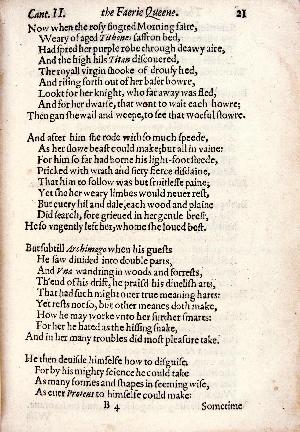 Cant. II. the Faerie Queene. 21
Now when the rosy fingred Morning faire,
Weary of aged Tithones saffron bed,
Had spred her purple robe through deawy aire,
And the high hils Titan discouered,
The royall virgin shooke of drousy hed,
And rising forth out of her baser bowre,
Lookt for her knight, who far away was fled,
And for her dwarfe, that wont to wait each howre;
Then gan she waile and weepe, to see that woefull stowre.
And after him she rode with so much speede,
As her slowe beast could make; but all in vaine:
For him so far had borne his light-foot steede,
Pricked with wrath and fiery fierce disdaine,
That him to follow was but fruitlesse paine;
Yet she her weary limbes would neuer rest,
But euery hil and dale, each wood and plaine
Did search, sore grieued in her gentle brest,
He so vngently left her, whome she loued best.
But subtill Archimago when his guests
He saw diuided into double parts,
And Vna wandring in woods and forrests,
Th'end of his drift, he praisd his diuelish arts,
That had such might ouer true meaning harts:
Yet rests not so, but other meanes doth make,
How he may worke vnto her further smarts:
For her he hated as the hissing snake,
And in her many troubles did most pleasure take.
He then deuisde himselfe how to disguise,
For by his mighty science he could take
As many formes and shapes in seeming wise,
As euer Proteus to himselfe could make:
B 4 Sometime